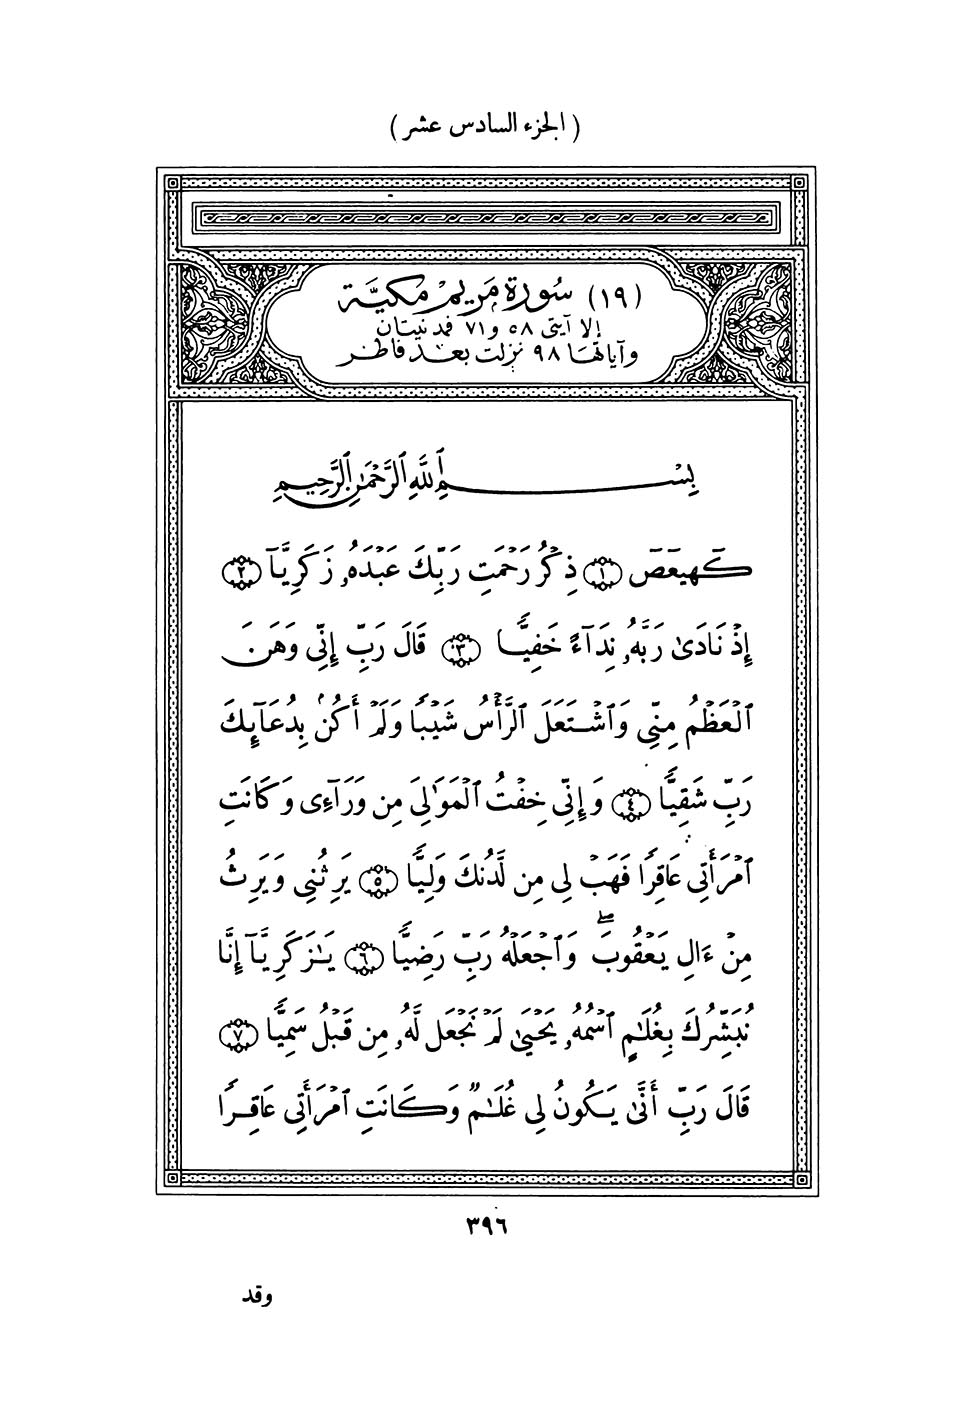 ( الجزء السادس عشر )
(١٩) سُورَةُ مَريَمَ مَكيَّة
إلا آيتى ٥٨ و ٧١ فمدنيتان
وآياتها ٩٨ نزلت بعد فاطر
بِسْمِ ٱللَّهِ ٱلرَّحْمَٰنِ ٱلرَّحِيمِ
كٓهيعٓصٓ ﴿١﴾ ذِكْرُ رَحْمَتِ رَبِّكَ عَبْدَهُۥ زَكَرِيَّآ ﴿٢﴾
إِذْ نَادَىٰ رَبَّهُۥ نِدَآءً خَفِيًّا ﴿٣﴾ قَالَ رَبِّ إِنِّى وَهَنَ
ٱلْعَظْمُ مِنِّى وَٱشْتَعَلَ ٱلرَّأْسُ شَيْبًا وَلَمْ أَكُنۢ بِدُعَآئِكَ
رَبِّ شَقِيًّا ﴿٤﴾ وَإِنِّى خِفْتُ ٱلْمَوَٰلِىَ مِن وَرَآءِى وَكَانَتِ
ٱمْرَأَتِى عَاقِرًا فَهَبْ لِى مِن لَّدُنكَ وَلِيًّا ﴿٥﴾ يَرِثُنِى وَيَرِثُ
مِنْ ءَالِ يَعْقُوبَ ۖ وَٱجْعَلْهُ رَبِّ رَضِيًّا ﴿٦﴾ يَٰزَكَرِيَّآ إِنَّا
نُبَشِّرُكَ بِغُلَٰمٍ ٱسْمُهُۥ يَحْيَىٰ لَمْ نَجْعَل لَّهُۥ مِن قَبْلُ سَمِيًّا ﴿٧﴾
قَالَ رَبِّ أَنَّىٰ يَكُونُ لِى غُلَٰمٌ وَكَانَتِ ٱمْرَأَتِى عَاقِرًا
٣٩٦
وقد